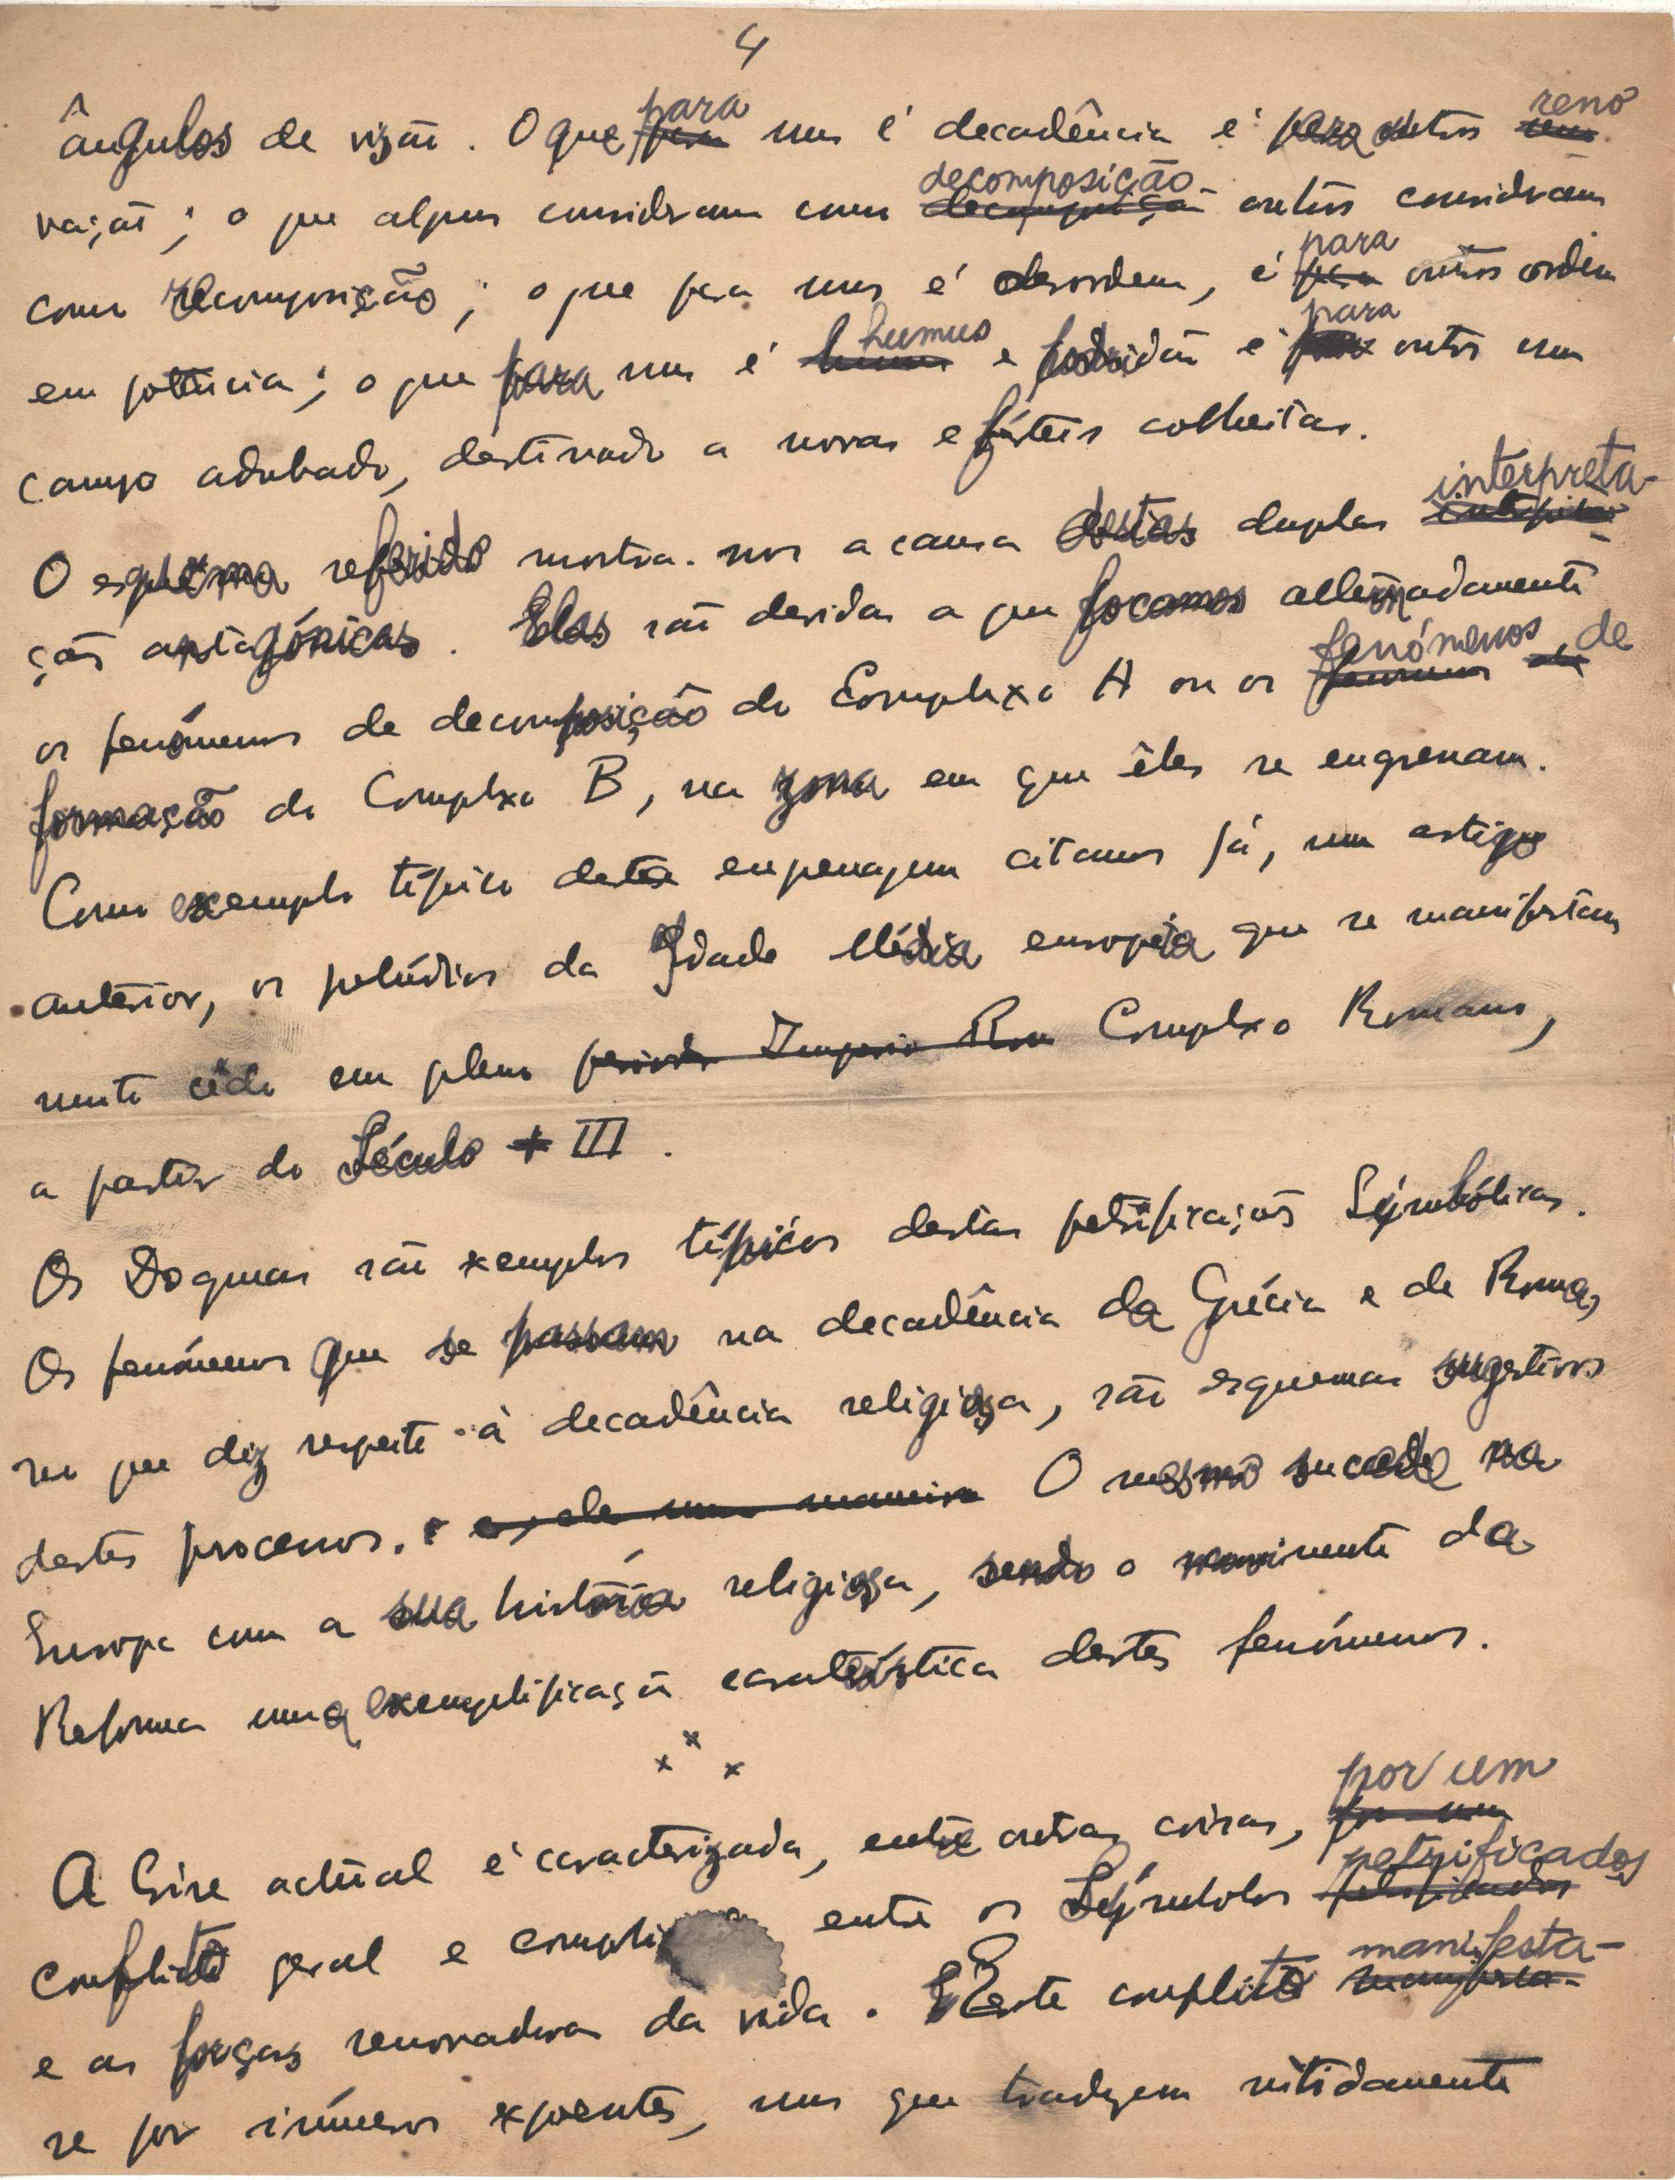 4
ângulos de vizão. O que para uns é decadência é para outros reno
vação; o que alguns consideram como decomposição outros consideram
como recomposição; o que para uns é desordem, é para outros ordem
em potência; o que para uns é humus e podridão é para outros um
campo adubado, destinado a novas e férteis colheitas.
O esquema referido mostra-nos a causa destas duplas interpreta-
ções antagónicas. Elas são devidas a que focamos alternadamente
os fenómenos de decomposição do Complexo A ou os fenómenos de
formação do Complexo B, na zona em que êles se engrenam.
Como exemplo típico desta engrenagem citamos já, num artigo
anterior, os prelúdios da Idade Média europeia que se manifestam
muito cêdo em pleno periodo Imperio Rom Complexo Romano,
a partir do Século + III.
Os Dogmas são exemplos típicos destas petrificações Símbólicas.
Os fenómenos que se passam na decadência da Grécia e de Roma,
no que diz respeito à decadência religiosa, são esquemas sugestivos
destes processos. e, de uma maneira O mesmo sucede na
Europa com a sua história religiosa, sendo o movimento da
Reforma uma exemplificação caraterística destes fenómenos.
x x x
A Crise actual é caracterizada, entre outras coisas, por um
conflito geral e entre os Símbolos petrificados
e as forças renovadoras da vida. Este conflito manifesta-
se por inúmeros expoentes, uns que traduzem nitidamente